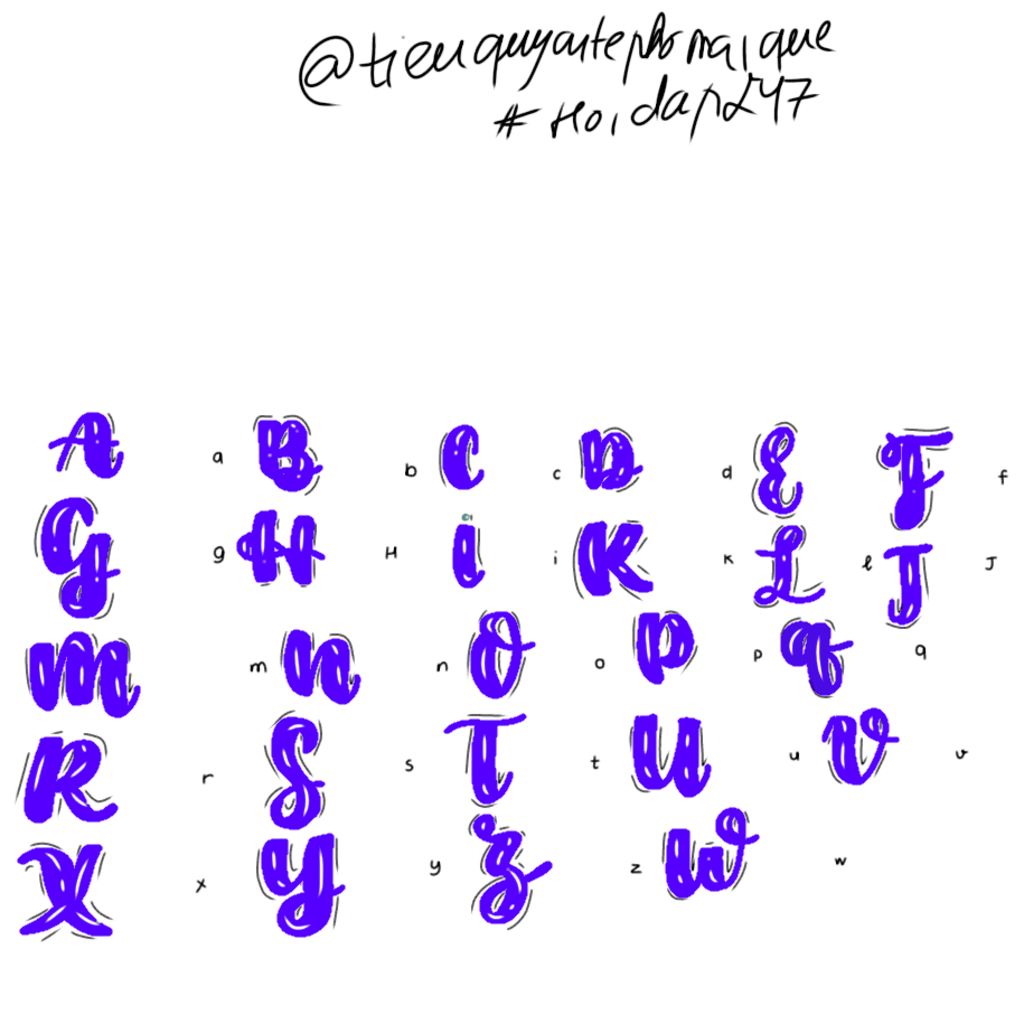 @tieuquyartephomaique
#Hoidap247
A a B b C c D d E F f
G g H H I i K K L l J J
M m N n O o P p Q q
R r S s T t U u V v
X x Y y Z z W w